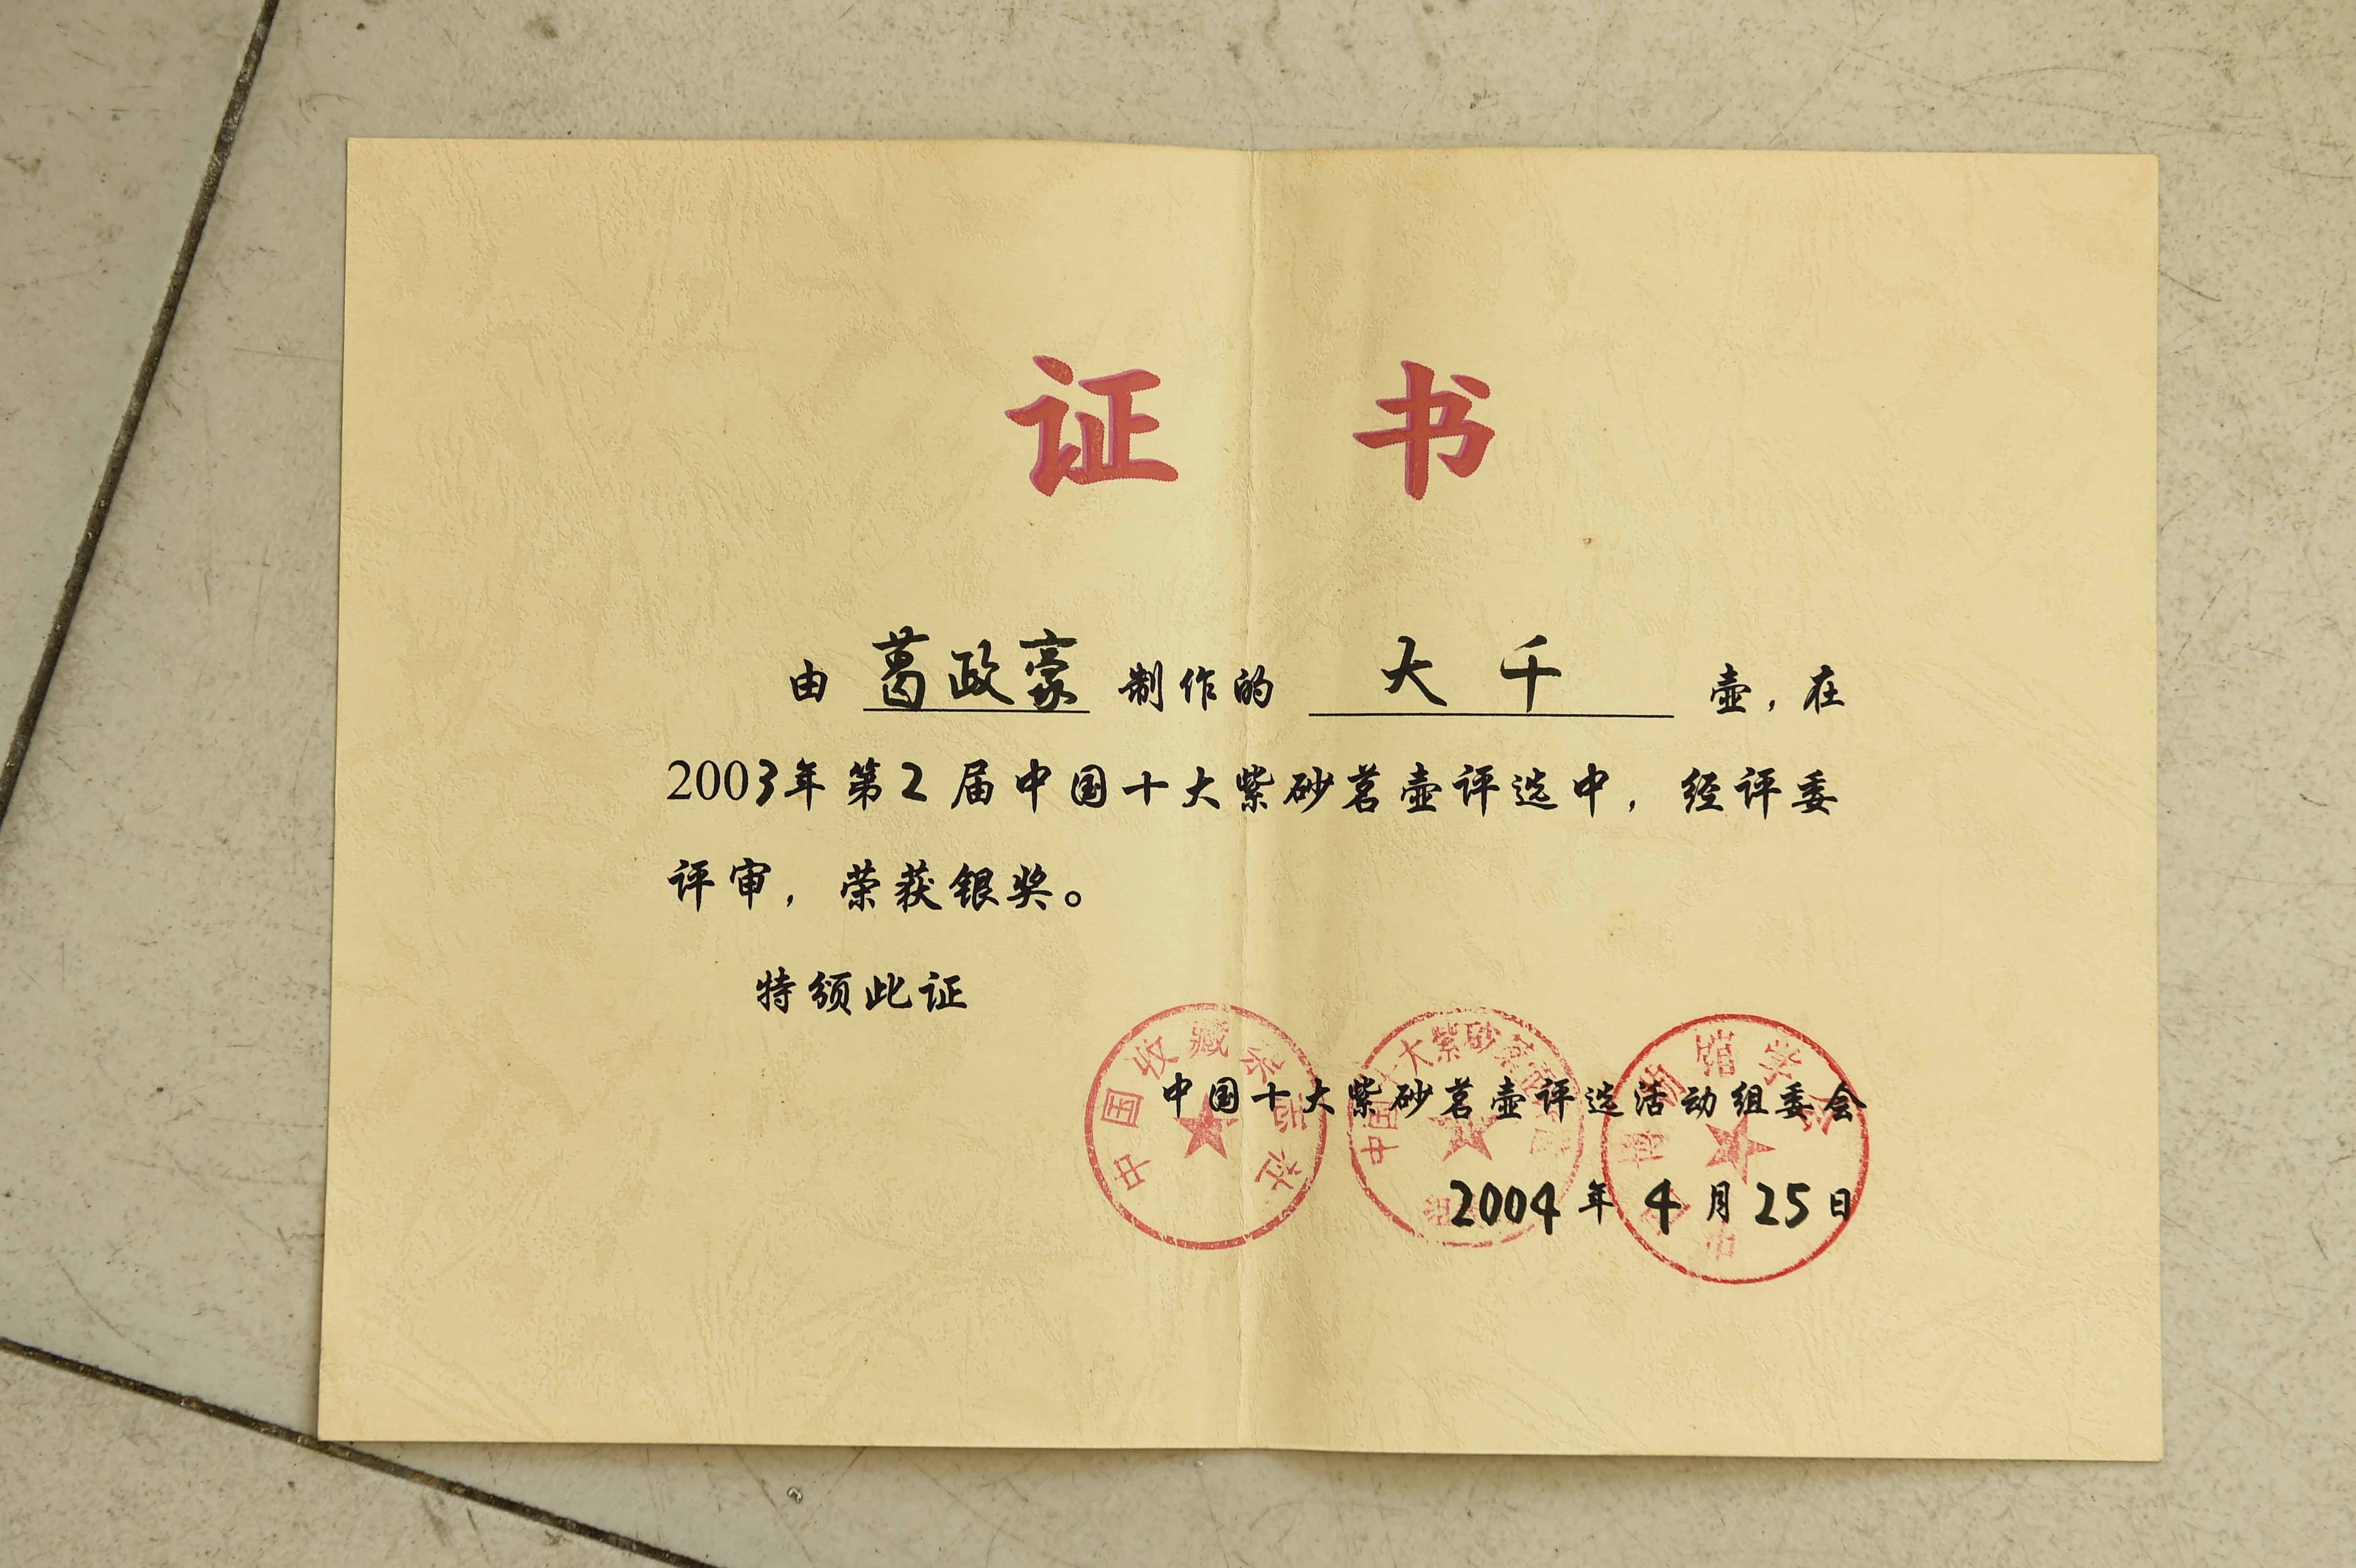 证书
由 葛政豪 制作的 大千 壶，在
2003年第2届中国十大紫砂茗壶评选中，经评委
评审，荣获银奖。
特颁此证
中国十大紫砂茗壶评选活动组委会
2004年4月25日
中国收藏杂志社
中国十大紫砂